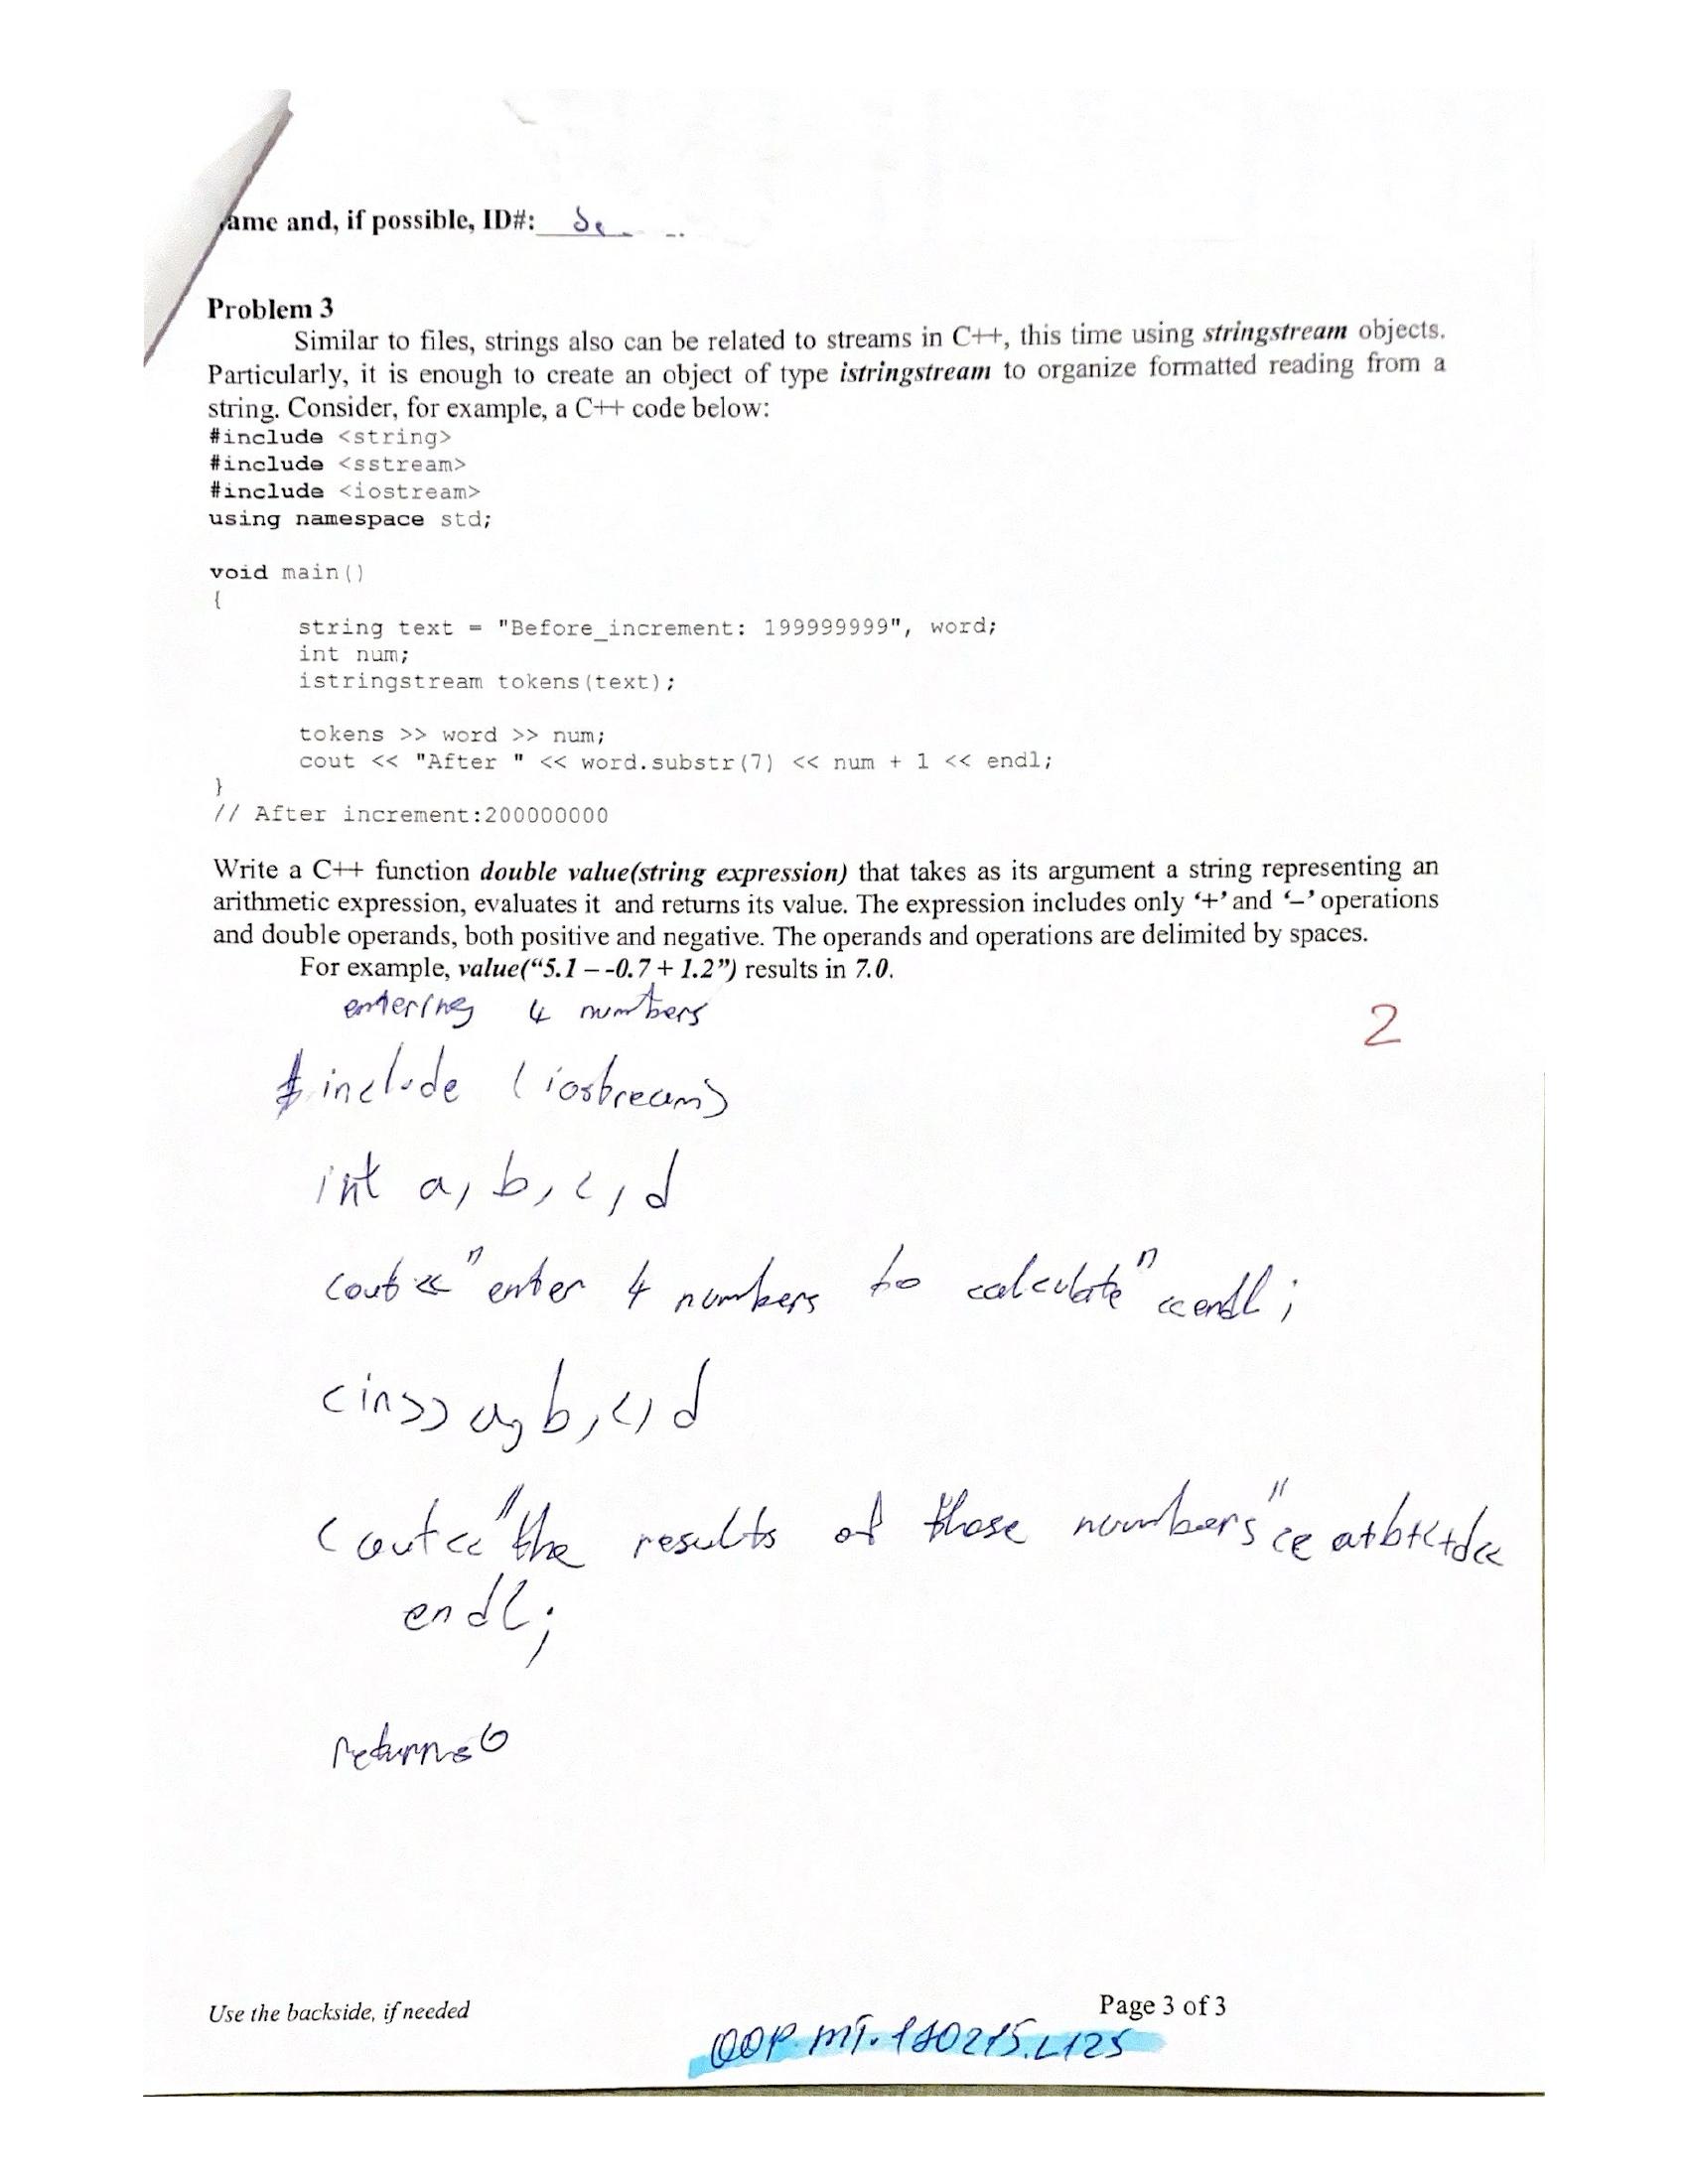 ame and, if possible, ID#:
Problem 3
Similar to files, strings also can be related to streams in C++, this time using stringstream objects.
Particularly, it is enough to create an object of type istringstream to organize formatted reading from a
string. Consider, for example, a C++ code below:
#include <string>
#include <sstream>
#include <iostream>
using namespace std;
void main()
{
string text = "Before_increment: 199999999", word;
int num;
istringstream tokens(text);
tokens >> word >> num;
cout << "After " << word.substr(7) << num + 1 << endl;
}
// After increment:200000000
Write a C++ function double value(string expression) that takes as its argument a string representing an
arithmetic expression, evaluates it and returns its value. The expression includes only ‘+’ and ‘–’ operations
and double operands, both positive and negative. The operands and operations are delimited by spaces.
For example, value(“5.1 – -0.7 + 1.2”) results in 7.0.
entering 4 numbers
2
#include (iostream)
int a, b, c, d
cout << "enter 4 numbers to calculate" << endl;
cin>> a, b, c, d
cout<< "the results of those numbers" << a+b+c+d<<
endl;
Use the backside, if needed
Page 3 of 3
OOP.MT.180215.L125